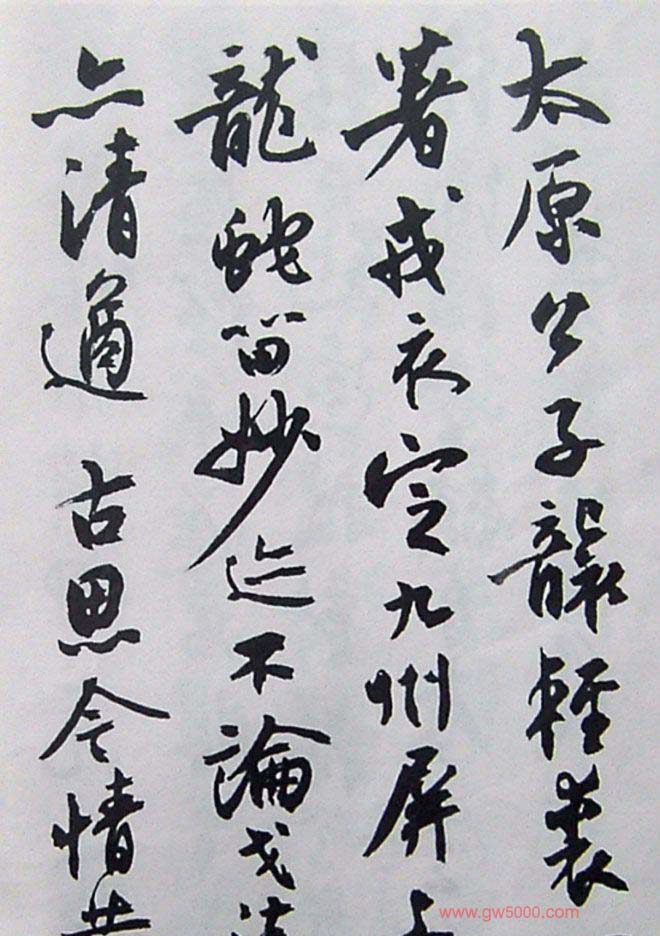 太原公子襲輕裘
署戎衣定九州屏上
龍蛇留妙迹不論戈法
亦清遒 古思今情共
www.gw5000.com